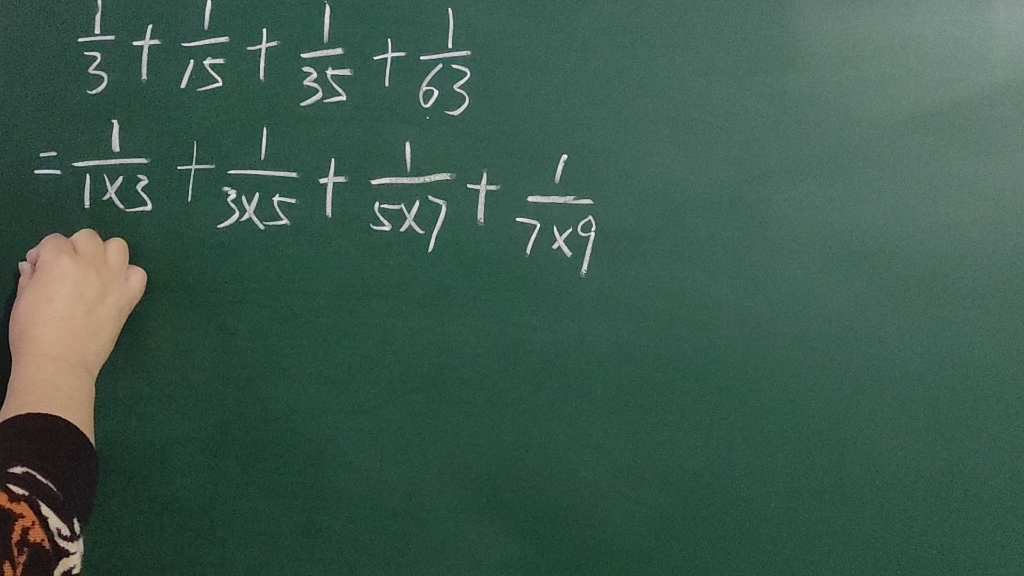 1/3 + 1/15 + 1/35 + 1/63
= 1/1×3 + 1/3×5 + 1/5×7 + 1/7×9